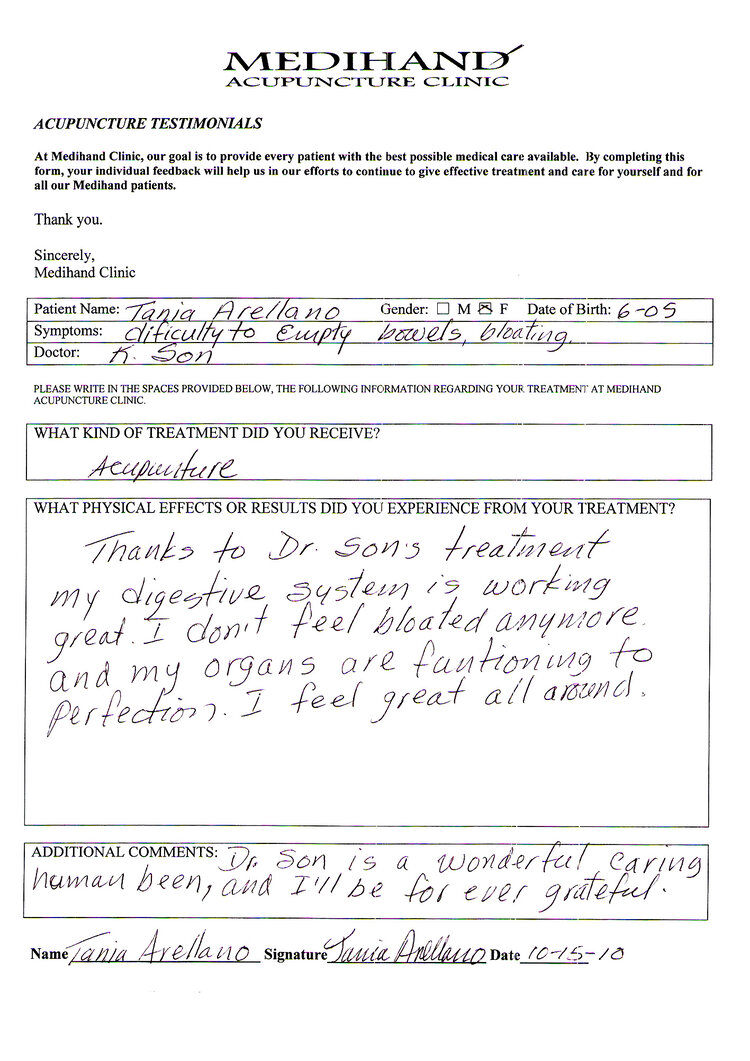 MEDIHAND
ACUPUNCTURE CLINIC
ACUPUNCTURE TESTIMONIALS
At Medihand Clinic, our goal is to provide every patient with the best possible medical care available. By completing this
form, your individual feedback will help us in our efforts to continue to give effective treatment and care for yourself and for
all our Medihand patients.
Thank you.
Sincerely,
Medihand Clinic
Patient Name: Tania Arellano Gender: ☐ M ☒ F Date of Birth: 6-05
Symptoms: dificulty to Empty bowels, bloating.
Doctor: K. Son
PLEASE WRITE IN THE SPACES PROVIDED BELOW, THE FOLLOWING INFORMATION REGARDING YOUR TREATMENT AT MEDIHAND
ACUPUNCTURE CLINIC.
WHAT KIND OF TREATMENT DID YOU RECEIVE?
Acupunture
WHAT PHYSICAL EFFECTS OR RESULTS DID YOU EXPERIENCE FROM YOUR TREATMENT?
Thanks to Dr. Son's treatment
my digestive system is working
great. I don't feel bloated anymore.
and my organs are funtioning to
perfection. I feel great all around.
ADDITIONAL COMMENTS: Dr. Son is a wonderful, caring
human been, and I'll be for ever grateful.
Name Tania Arellano Signature Tania Arellano Date 10-15-10